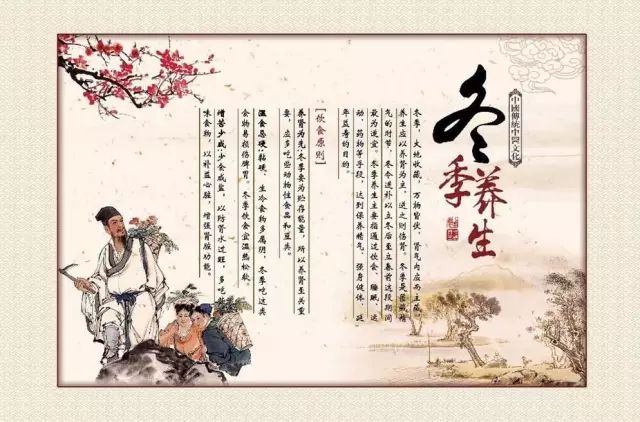 冬季养生
中國傳統中醫文化
冬季，大地收藏，万物皆伏，肾气内应而主藏，
养生应以养肾为主，逆之则伤肾。冬季是蓄藏精
气的时节，冬令进补以立冬后至立春前这段期间
最为适宜。冬季养生主要指通过饮食、睡眠、运
动、药物等手段，达到保养精气，强身健体，延
年益寿的目的。
【饮食原则】
养肾为先:冬季要为贮存能量，所以养肾至关重
要，应多吃些动物性食品和豆类。
温食忌硬:黏硬、生冷食物多属阴，冬季吃这类
食物易损伤脾胃。冬季饮食宜温热松软。
增苦少咸:少食咸盐，以防肾水过旺，多吃
味食物，以补益心脏，增强肾脏功能。